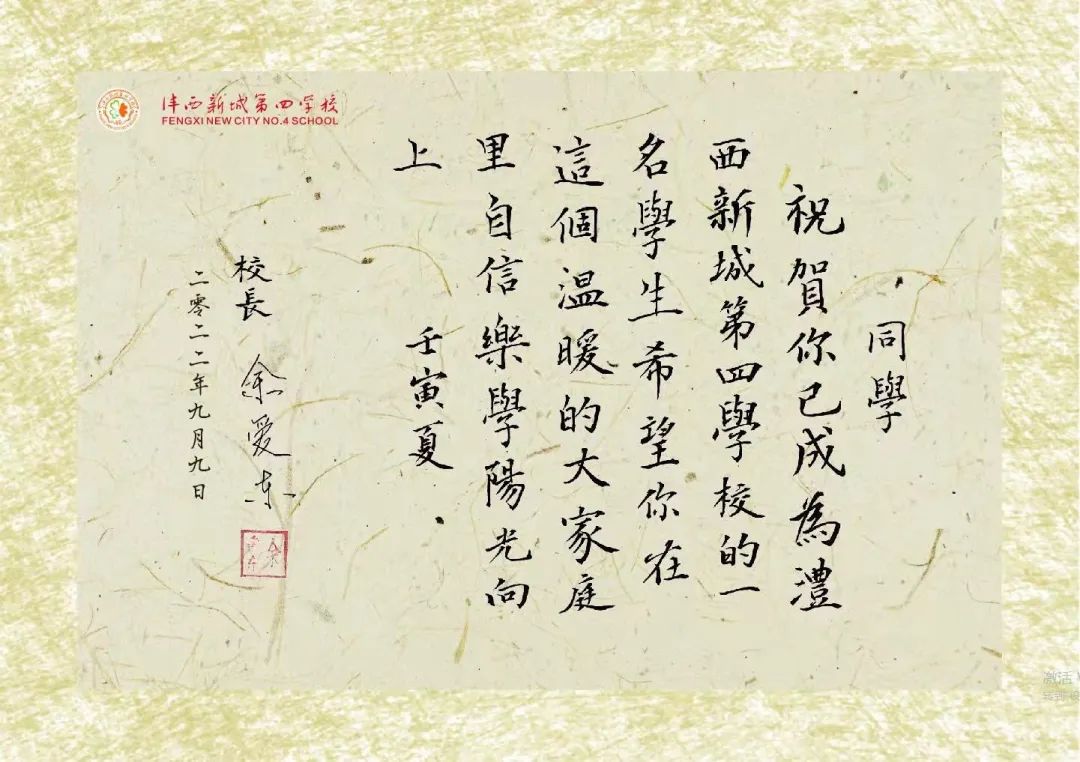 沣西新城第四学校
FENGXI NEW CITY NO.4 SCHOOL
同學
祝賀你已成為澧
西新城第四學校的一
名學生希望你在
這個温暖的大家庭
里自信樂學陽光向
上
壬寅夏
校長 余爱东
二零二二年九月九日
激活
转到